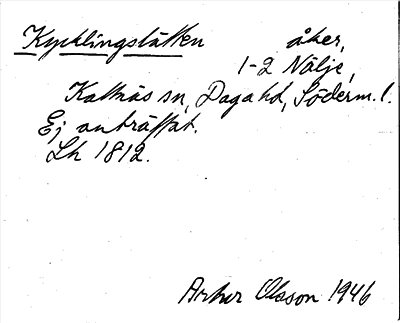 Kycklingslätten åker,
1-2 Nälje,
Kattnäs sn, Daga hd, Söderm. l.
Ej anträffat.
Lh 1812.
Arhur Olsson 1946